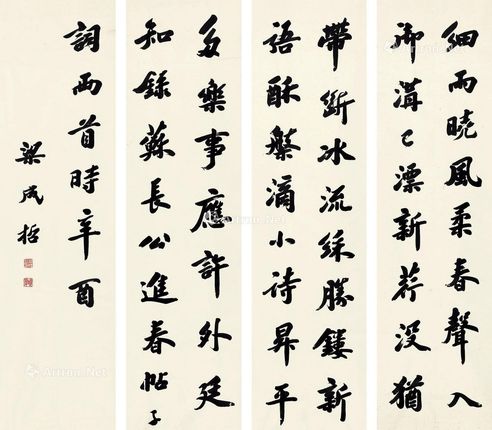 細雨曉風柔春聲入
御溝已漂新荇没猶
帶斷冰流綵勝鏤新
語酥槃滴小詩昇平
多樂事應許外廷
知錄蘇長公進春帖子
詞兩首時辛酉
梁成哲
Artron.Net